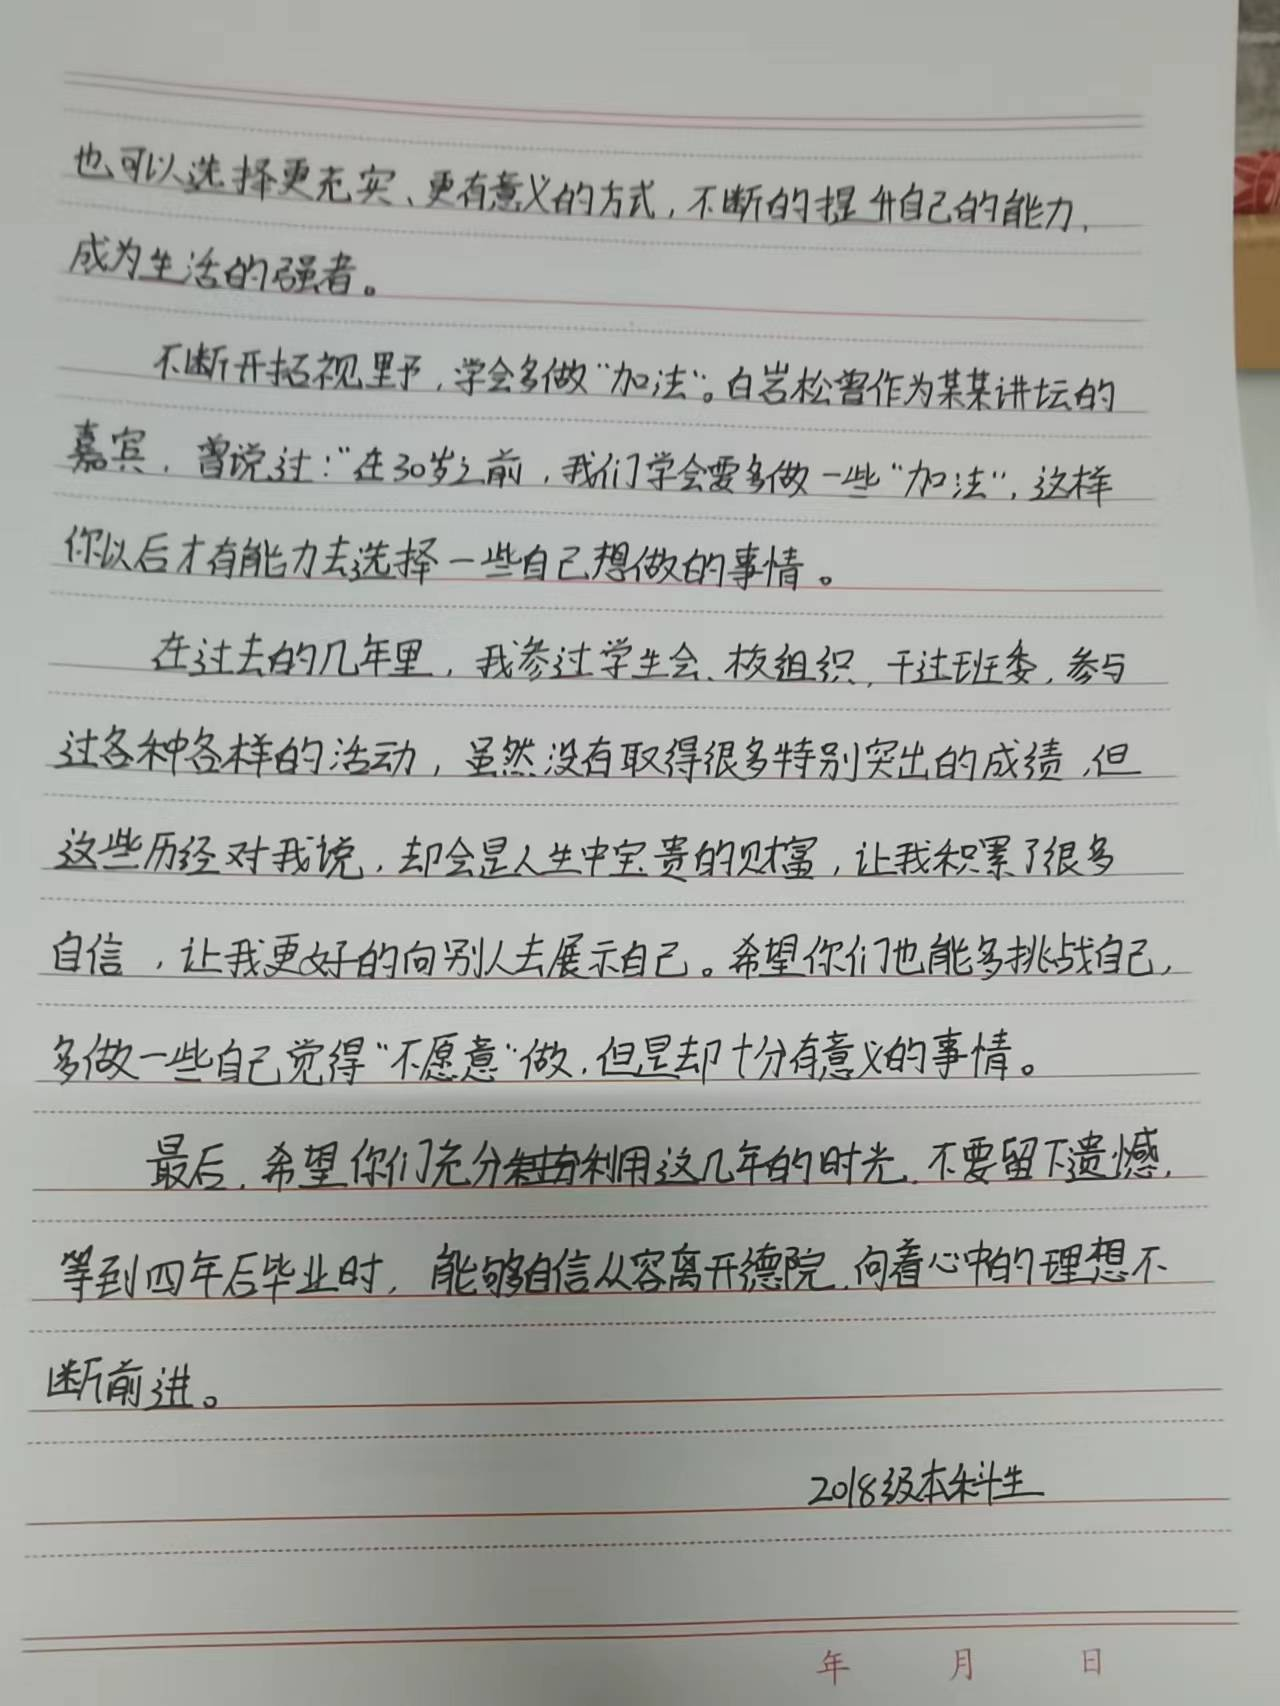 也可以选择更充实、更有意义的方式，不断的提升自己的能力，
成为生活的强者。
不断开拓视野，学会多做“加法”。白岩松曾作为某某讲坛的
嘉宾，曾说过：“在30岁之前，我们学会要多做一些“加法”，这样
你以后才有能力去选择一些自己想做的事情。
在过去的几年里，我参过学生会、校组织，干过班委，参与
过各种各样的活动，虽然没有取得很多特别突出的成绩，但
这些历经对我说，却会是人生中宝贵的财富，让我积累了很多
自信，让我更好的向别人去展示自己。希望你们也能多挑战自己，
多做一些自己觉得“不愿意”做，但是却十分有意义的事情。
最后，希望你们充分利用这几年的时光，不要留下遗憾，
等到四年后毕业时，能够自信从容离开德院，向着心中的理想不
断前进。
2018级本科生
年 月 日